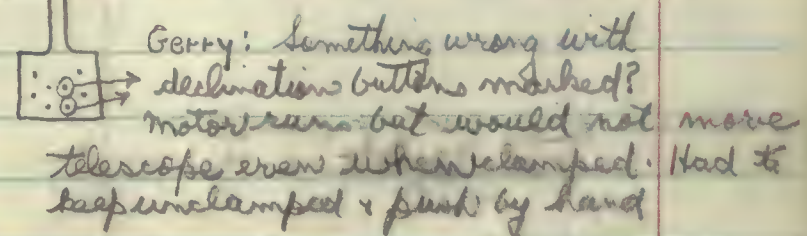 Gerry: Something wrong with
declination buttons marked?
motor runs but would not move
telescope even when clamped. Had to
keep unclamped & push by hand